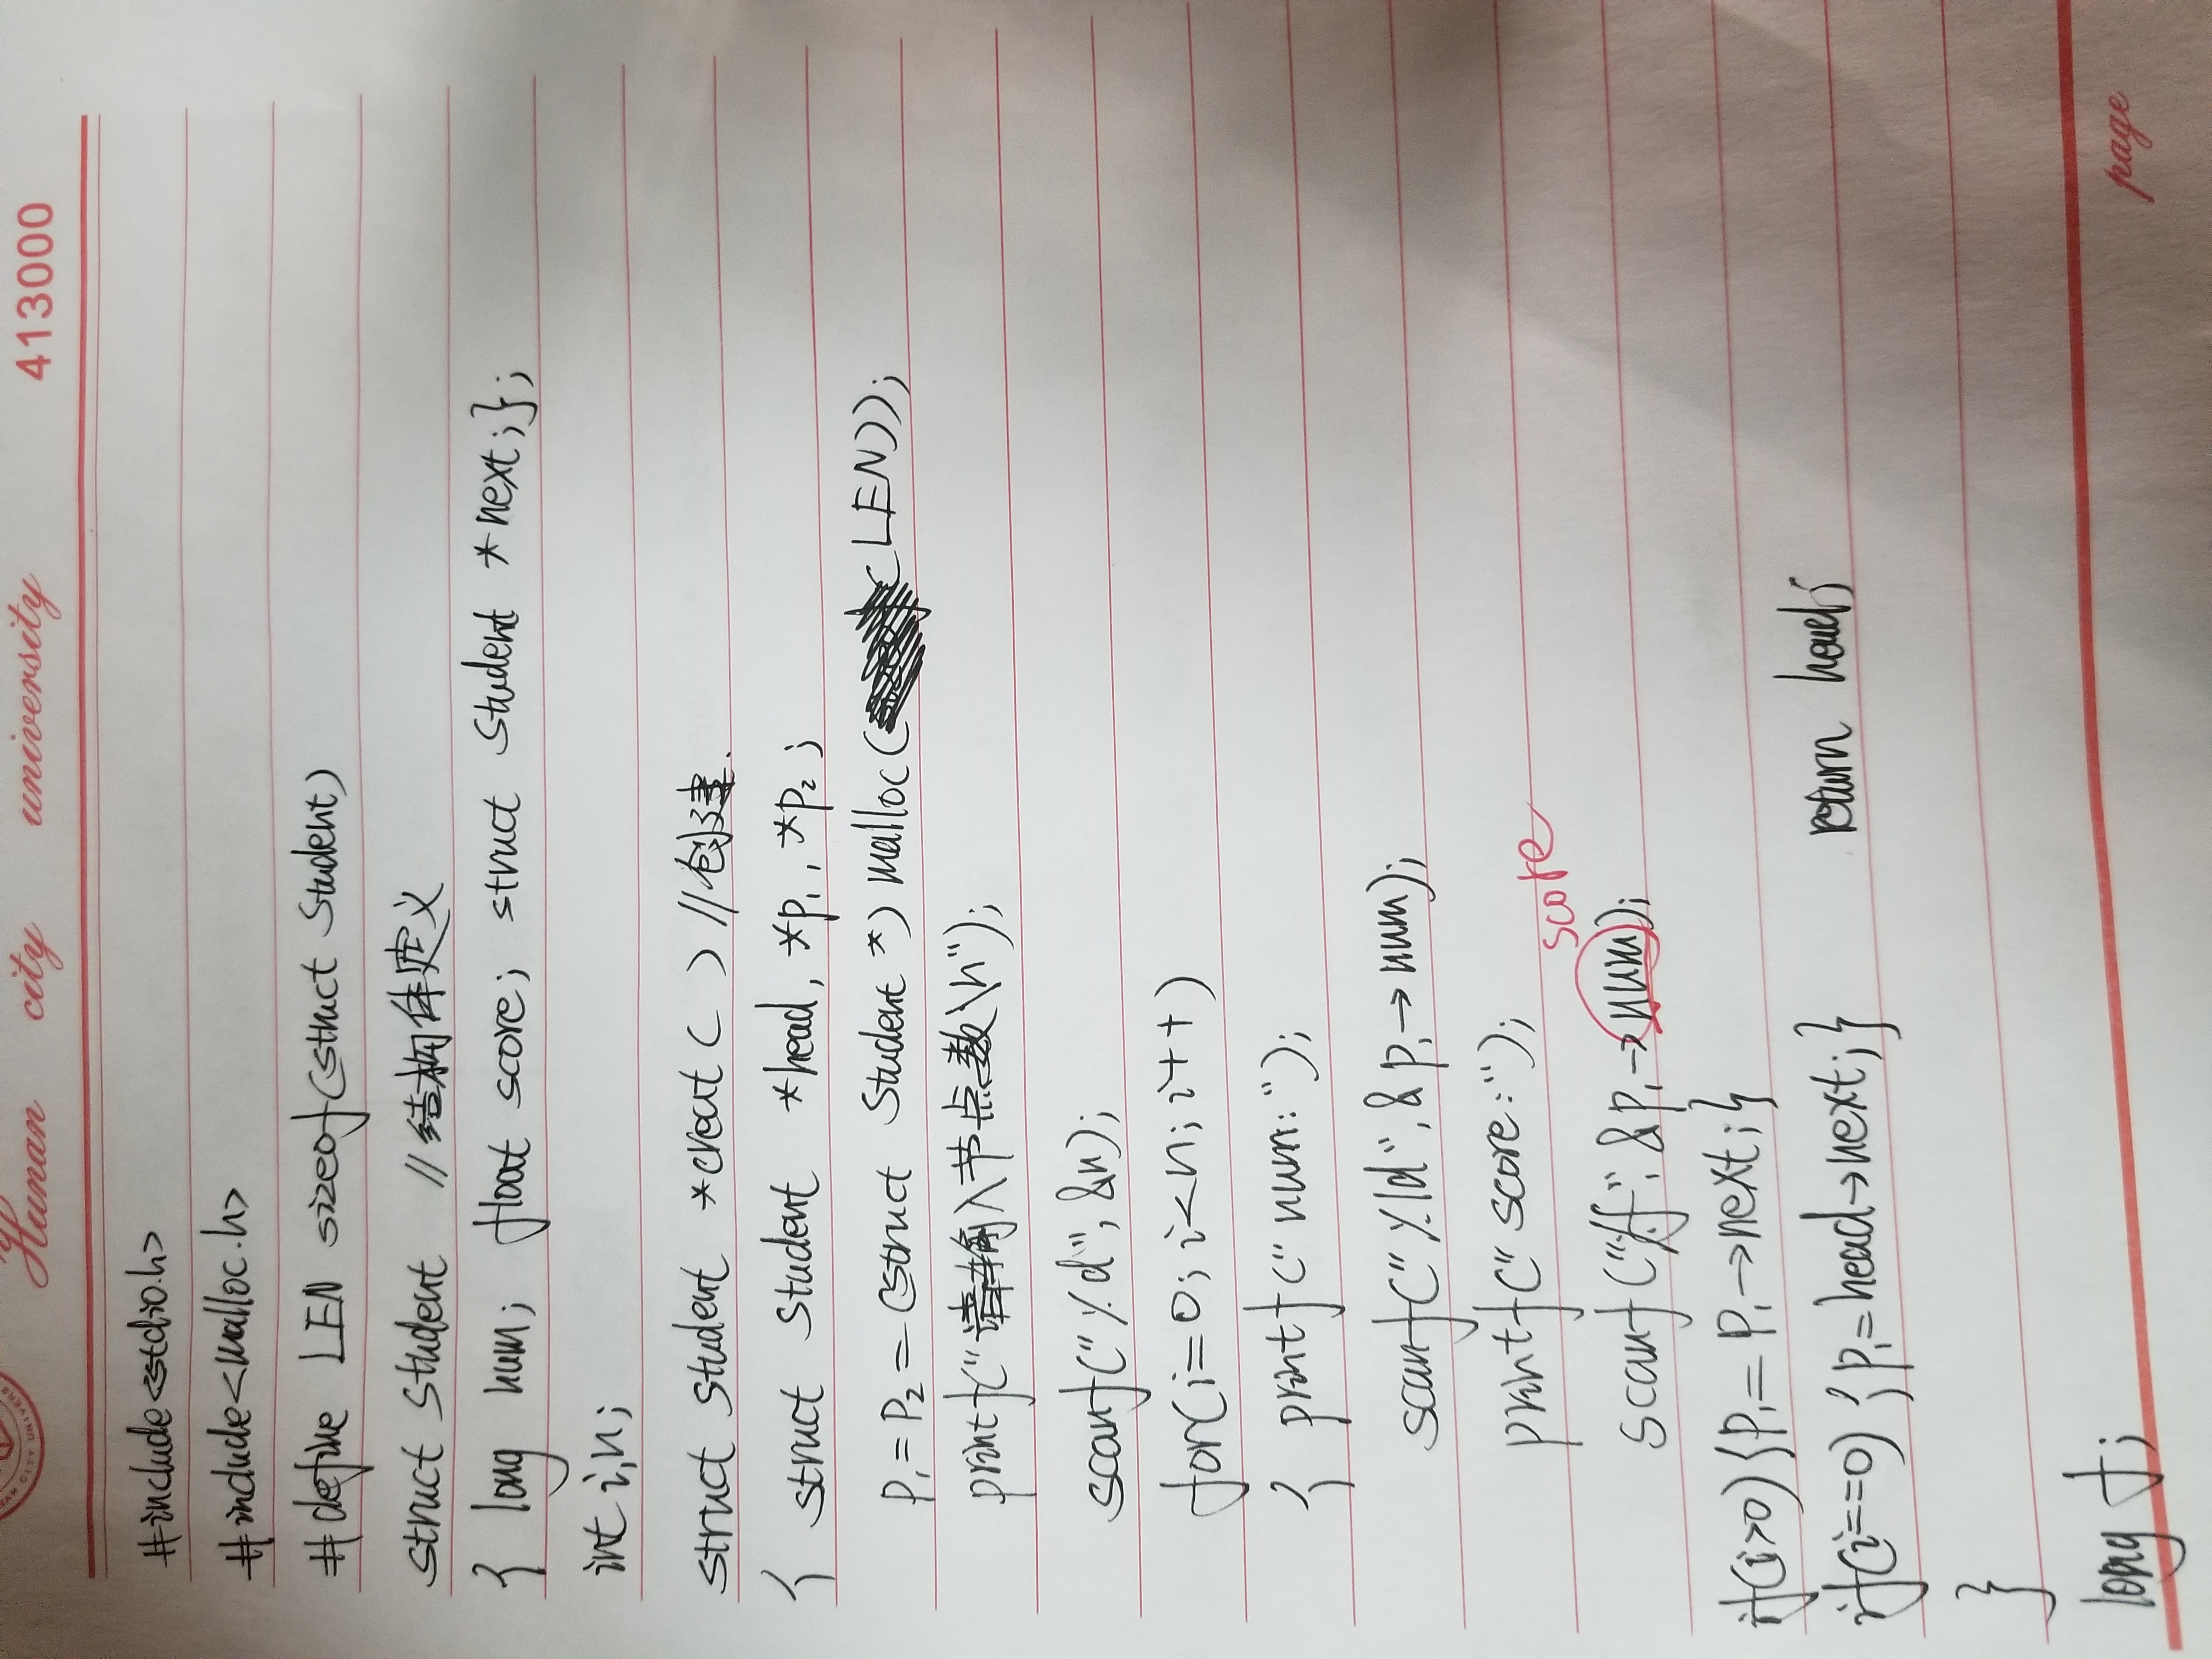 CITY UNIVER
Hunan city university 413000
#include<stdio.h>
#include<malloc.h>
#define LEN sizeof(struct Student)
struct Student //结构体定义
{ long num; float score; struct Student *next;};
int i,n;
struct Student *creat( ) //创建.
{ struct Student *head, *p1, *p2;
p1=p2=(struct Student *) malloc((LEN));
printf("请输入节点数\n");
scanf("%d", &n);
for(i=0; i<n; i++)
{ printf("num:");
scanf("%ld", &p1→num);
printf("score:");
score
scanf("%f", &p1→num);
if(i>0){p1=p1→next;}
if(i==0){p1=head→next;} return head;
}
long f;
page